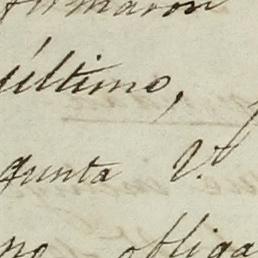 firmaron
último,
gunta V.
no obliga